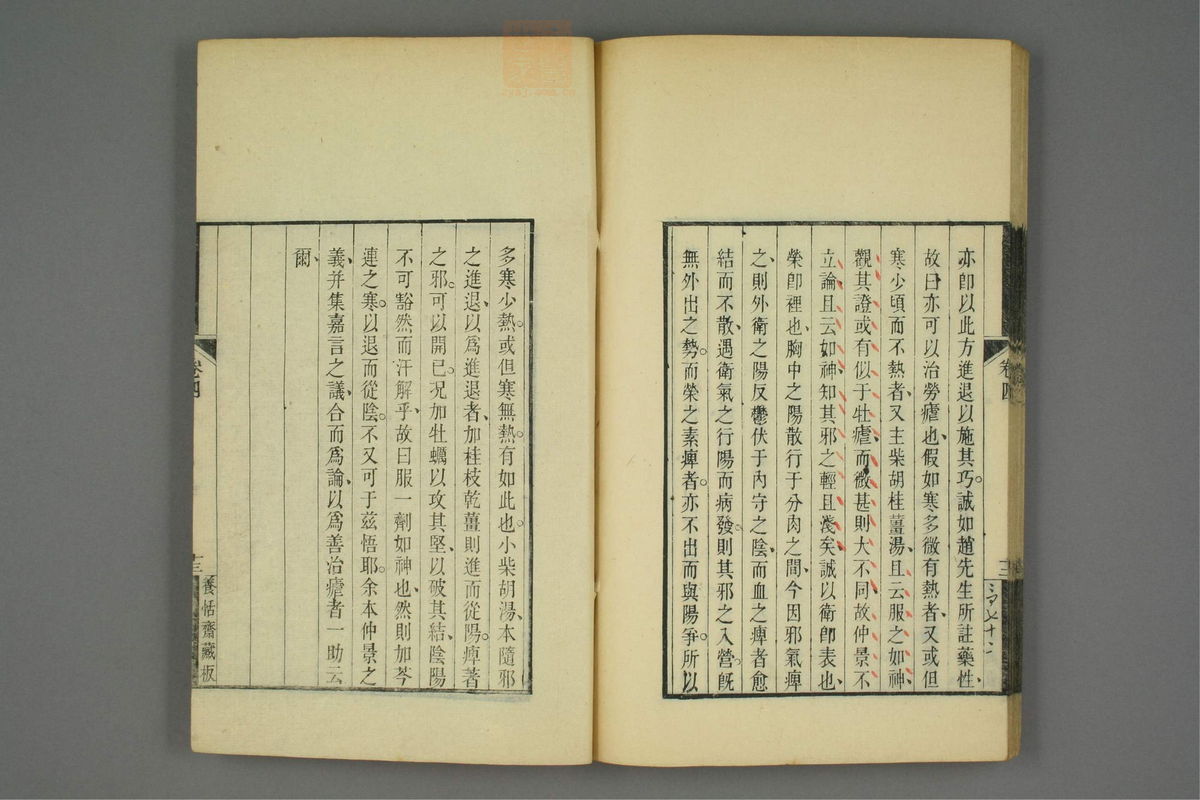 亦卽以此方進退以施其巧。誠如趙先生所註藥性、
故曰亦可以治勞瘧也、假如寒多微有熱者、又或但
寒少頃而不熱者、又主柴胡桂薑湯、且云服之如神、
觀其證或有似于牡瘧、而微甚則大不同故仲景不
立論且云如神知其邪之輕且淺矣誠以衛卽表也、
榮卽裡也、胸中之陽散行于分肉之間、今因邪氣痺
之、則外衛之陽反鬱伏于內守之陰、而血之痺者愈
結而不散、遇衛氣之行陽而病發。則其邪之入營。旣
無外出之勢。而榮之素痺者。亦不出而與陽爭。所以
卷四
十二
多寒少熱。或但寒無熱。有如此也。小柴胡湯、本隨邪
之進退、以爲進退者、加桂枝乾薑則進而從陽。痺著
之邪。可以開已。况加牡蠣以攻其堅、以破其結、陰陽
不可豁然而汗解乎、故曰服一劑如神也、然則加芩
連之寒。以退而從陰。不又可于兹悟耶。余本仲景之
義、并集嘉言之議、合而爲論、以爲善治瘧者一助云
爾、
卷四
十三
養恬齋藏板